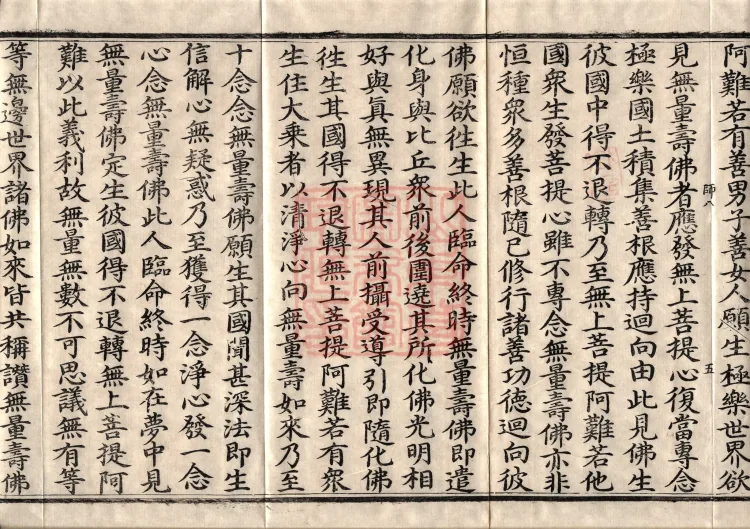 阿難若有善男子善女人願生極樂世界欲
見無量壽佛者應發無上菩提心復當專念
師八
五
極樂國土積集善根應持迴向由此見佛生
彼國中得不退轉乃至無上菩提阿難若他
國衆生發菩提心雖不專念無量壽佛亦非
恒種衆多善根隨己修行諸善功德迴向彼
佛願欲往生此人臨命終時無量壽佛即遣
化身與比丘衆前後圍遶其所化佛光明相
好與真無異現其人前攝受導引即隨化佛
往生其國得不退轉無上菩提阿難若有衆
生住大乗者以清淨心向無量壽如來乃至
十念念無量壽佛願生其國聞甚深法即生
信解心無疑惑乃至獲得一念淨心發一念
心念無量壽佛此人臨命終時如在夢中見
無量壽佛定生彼國得不退轉無上菩提阿
難以此義利故無量無數不可思議無有等
等無邊世界諸佛如來皆共稱讚無量壽佛